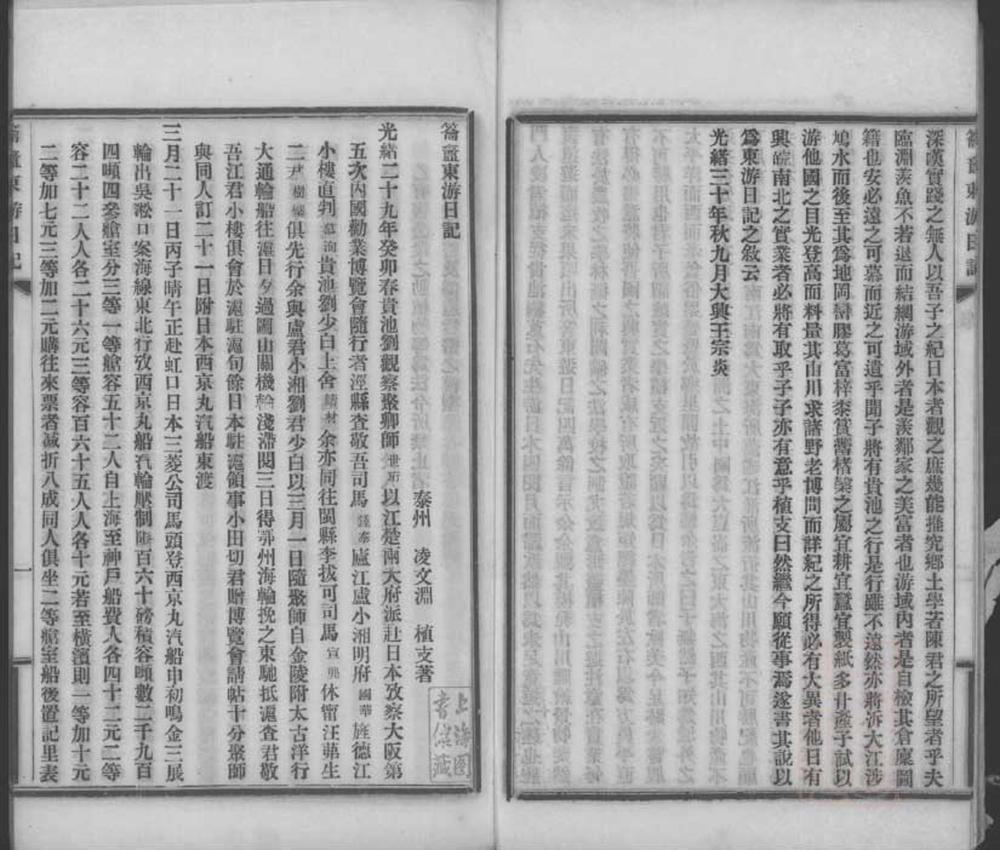 深嘆實踐之無人以吾子之紀日本者觀之庶幾能推究鄉土學若陳君之所望者乎夫
臨淵羨魚不若退而結網游域外者是羨鄰家之美富者也游域內者是自檢其倉廩圖
籍也安必遠之可慕而近之可遺乎聞子將有貴池之行是行雖不遠然亦將泝大江涉
鳩水而後至其爲地岡巒膠葛富梓桼之屬宜耕宜蠶宜製紙多廾產子試以
游他國之目光登高而料量其山川求諸野老博問而詳紀之所得必有大異者他日有
興皖南北之實業者必將有取乎子子亦有意乎植支曰然繼今願從事焉遂書其說以
爲東游日記之敘云
光緒三十年秋九月大興王宗炎
籥盦東游日記
泰州 凌文淵 植支著
光緒二十九年癸卯春貴池劉觀察聚卿師世珩以江楚兩大府派赴日本攷察大阪第
五次內國勸業博覽會隨行者涇縣查敬吾司馬廬江盧小湘明府國華旌德江
小樓直判慕洵貴池劉少白上舍余亦同往閩縣李拔可司馬宣龔休甯汪蕚生
二尹樹俱先行余與盧君小湘劉君少白以三月一日隨聚師自金陵附太古洋行
大通輪船往滬日夕過圌山關機淺滯閱三日得鄂州海輪挽之東馳抵滬查君敬
吾江君小樓俱會於滬駐滬旬餘日本駐滬領事小田切君贈博覽會請帖十分聚師
與同人訂二十一日附日本西京丸汽船東渡
三月二十一日丙子晴午正赴虹口日本三菱公司馬頭登西京丸汽船申初鳴金三展
輪出吳淞口案海線東北行攷西京丸船汽輪壓制百六十磅積容頓數二千九百
四頓四參艙室分三等一等艙容五十二人自上海至神戶船費人各四十二元二等
容二十二人人各二十六元三等容百六十五人人各十元若至橫濱則一等加十元
二等加七元三等加二元購往來票者減折八成同人俱坐二等艙室船後置記里表
一
上海圖書館藏